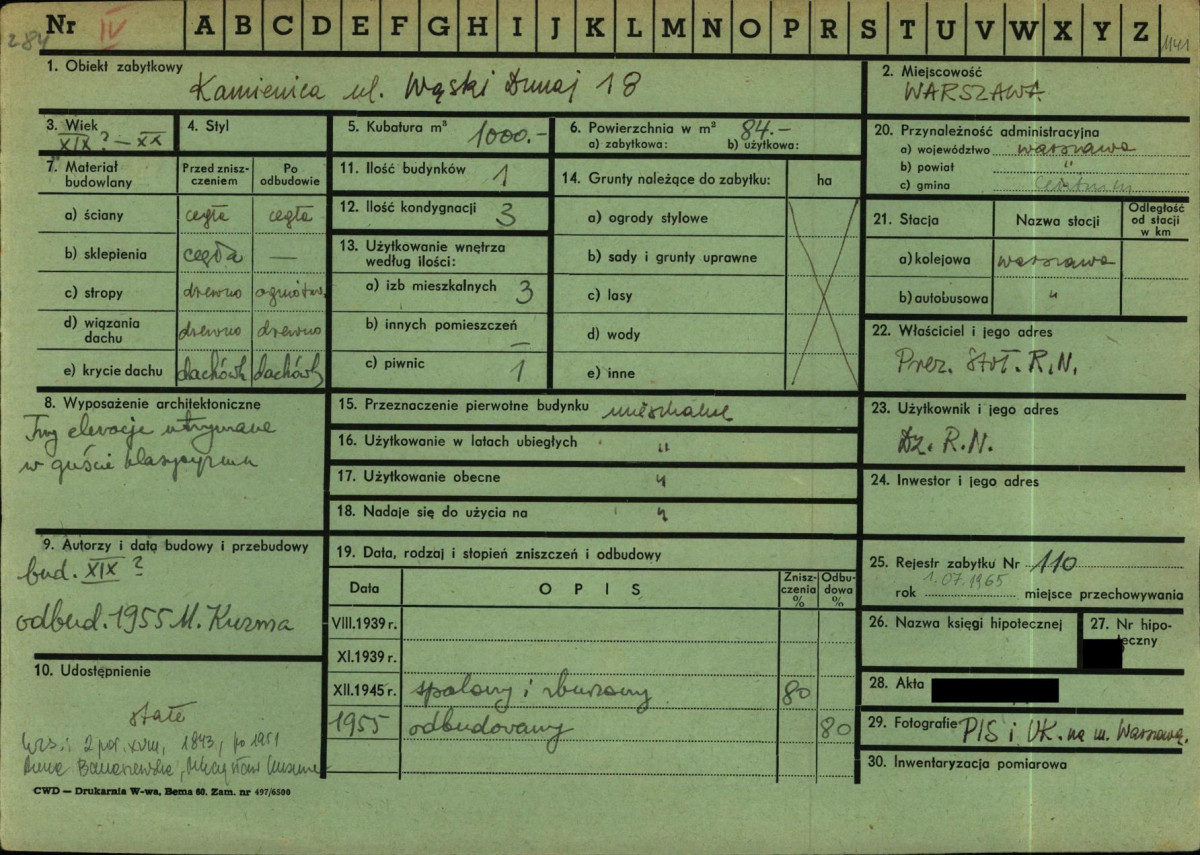 Nr IV A B C D E F G H I J K L M N O P R S T U V W X Y Z 1141
284
1. Obiekt zabytkowy
Kamienica ul. Wąski Dunaj 18
2. Miejscowość
WARSZAWA
3. Wiek
XIX ? — XX
4. Styl
5. Kubatura m³ 1000.-
6. Powierzchnia w m² 84.-
a) zabytkowa: b) użytkowa:
20. Przynależność administracyjna
a) województwo warszawa
b) powiat "
c) gmina
7. Materiał budowlany
Przed zniszczeniem
Po odbudowie
a) ściany cegła cegła
b) sklepienia cegła —
c) stropy drewno ogniotrw.
d) wiązania dachu drewno drewno
e) krycie dachu dachówk dachówk
11. Ilość budynków 1
12. Ilość kondygnacji 3
13. Użytkowanie wnętrza
według ilości:
a) izb mieszkalnych 3
b) innych pomieszczeń —
c) piwnic 1
14. Grunty należące do zabytku: ha
a) ogrody stylowe
b) sady i grunty uprawne
c) lasy
d) wody
e) inne
21. Stacja Nazwa stacji Odległość od stacji w km
a) kolejowa warszawa
b) autobusowa "
22. Właściciel i jego adres
Prez. Stoł. R.N.
8. Wyposażenie architektoniczne
Trzy elewacje utrzymane
w guście klasycyzmu
15. Przeznaczenie pierwotne budynku mieszkalne
16. Użytkowanie w latach ubiegłych "
17. Użytkowanie obecne "
18. Nadaje się do użycia na "
23. Użytkownik i jego adres
Dz. R.N.
24. Inwestor i jego adres
9. Autorzy i data budowy i przebudowy
bud. XIX ?
odbud. 1955 M. Kuzma
19. Data, rodzaj i stopień zniszczeń i odbudowy
Data OPIS Zniszczenia % Odbudowa %
VIII.1939 r.
XI.1939 r.
XII.1945 r. spalony i zburzony 80
1955 odbudowany 80
25. Rejestr zabytku Nr 110
1.07.1965
rok miejsce przechowywania
26. Nazwa księgi hipotecznej
27. Nr hipoteczny
28. Akta
29. Fotografie PIS i UK. na m. Warszawę.
30. Inwentaryzacja pomiarowa
10. Udostępnienie
stałe
wzs.: 2 poł. XVIII, 1843, po 1951
Anna Banaszewska, Mieczysław Kuzma
CWD — Drukarnia W-wa, Bema 60. Zam. nr 497/6500